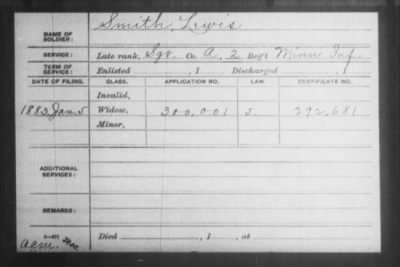 NAME OF SOLDIER: Smith, Lewis
SERVICE: Late rank, Sgt. Co. A, 2 Reg't Minn Inf.
TERM OF SERVICE: Enlisted , 1 Discharged , 1
DATE OF FILING. CLASS. APPLICATION NO. LAW. CERTIFICATE NO.
Invalid,
1883 Jan 5 Widow, 300,001 292,681
Minor,
ADDITIONAL SERVICES:
REMARKS:
Died , 1 , at